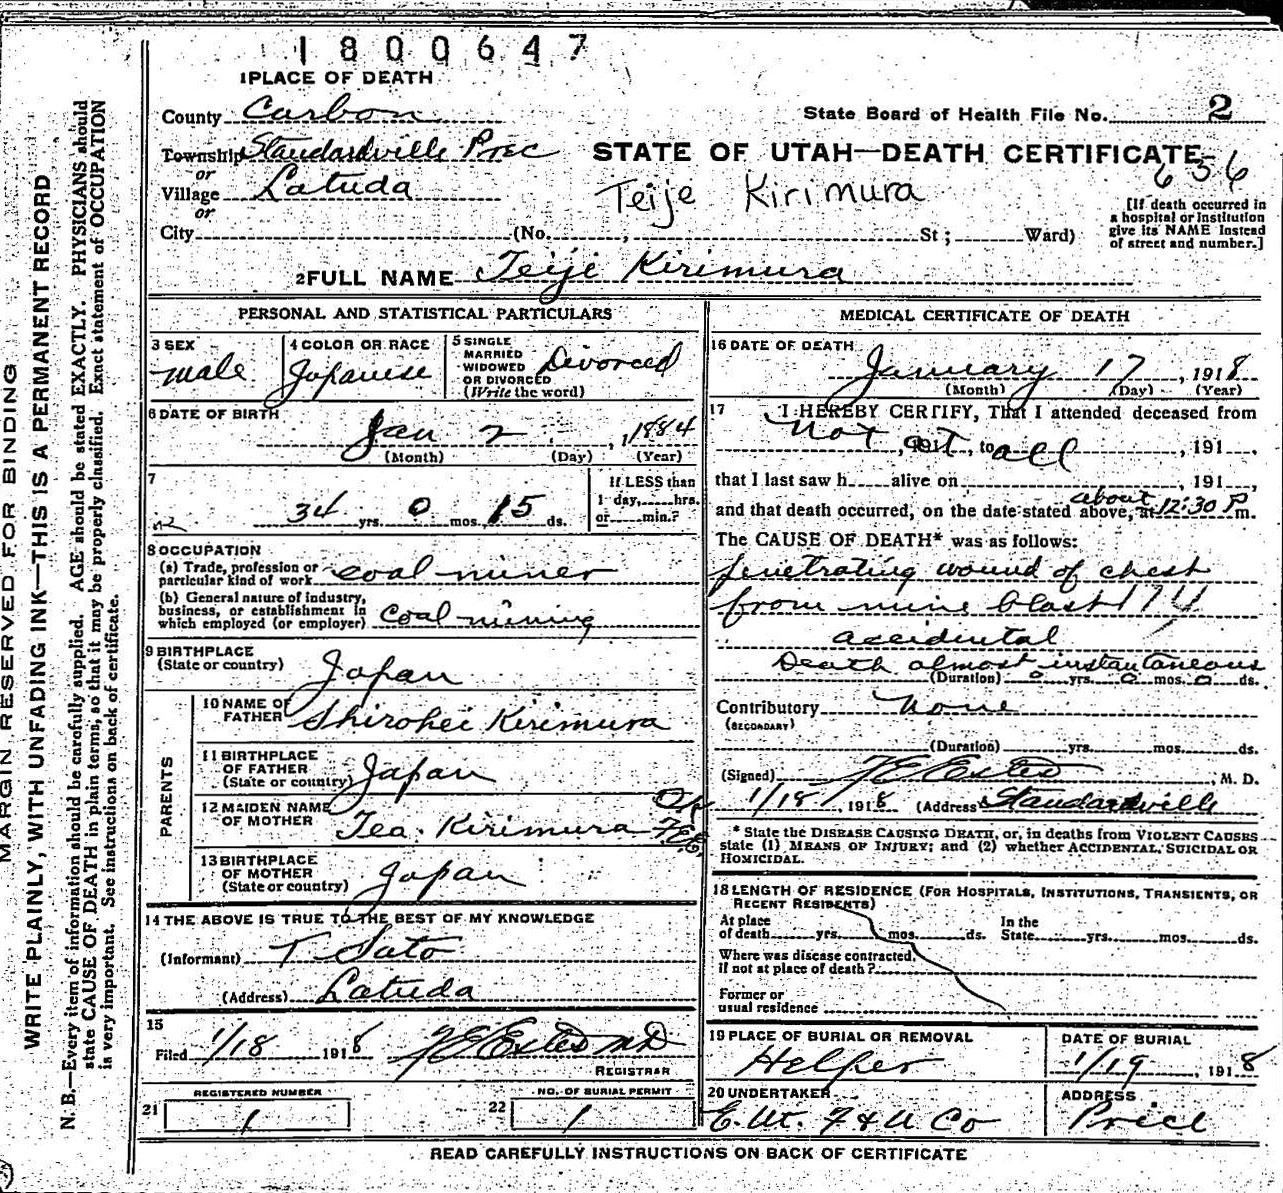 1800647
1 PLACE OF DEATH
County Carbon
State Board of Health File No. 2
Township Standardville Prec
STATE OF UTAH—DEATH CERTIFICATE
or
636
Village Latuda
Teije Kirimura
or
[If death occurred in
a hospital or institution
give its NAME instead
of street and number.]
City (No. , St ; Ward)
2 FULL NAME Teiji Kirimura
PERSONAL AND STATISTICAL PARTICULARS
3 SEX
male
4 COLOR OR RACE
Japanese
5 SINGLE
MARRIED
WIDOWED
OR DIVORCED
(Write the word)
Divorced
6 DATE OF BIRTH
Jan 2 , 1884
(Month) (Day) (Year)
7
34 yrs. 0 mos. 15 ds.
If LESS than
1 day, hrs.
or min.?
8 OCCUPATION
(a) Trade, profession or
particular kind of work coal miner
(b) General nature of industry,
business, or establishment in
which employed (or employer) coal mining
9 BIRTHPLACE
(State or country)
Japan
PARENTS
10 NAME OF
FATHER Shirohei Kirimura
11 BIRTHPLACE
OF FATHER
(State or country) Japan
12 MAIDEN NAME
OF MOTHER
Tea. Kirimura
OK
F.E.E.
13 BIRTHPLACE
OF MOTHER
(State or country) Japan
14 THE ABOVE IS TRUE TO THE BEST OF MY KNOWLEDGE
(Informant) T Sato
(Address) Latuda
15
Filed 1/18 1918
MD
REGISTRAR
21 REGISTERED NUMBER
1
22 NO. OF BURIAL PERMIT
1
MEDICAL CERTIFICATE OF DEATH
16 DATE OF DEATH
January 17 , 1918
(Month) (Day) (Year)
17 I HEREBY CERTIFY, That I attended deceased from
not , at , to all , 191 ,
that I last saw h alive on , 191 ,
and that death occurred, on the date stated above, at about 12:30 P m.
The CAUSE OF DEATH* was as follows:
penetrating wound of chest
from mine blast 174
accidental
Death almost instantaneous
(Duration) 0 yrs. 0 mos. 0 ds.
Contributory None
(SECONDARY)
(Duration) yrs. mos. ds.
(Signed) , M. D.
1/18 , 1918 (Address) Standardville
* State the DISEASE CAUSING DEATH, or, in deaths from VIOLENT CAUSES
state (1) MEANS OF INJURY; and (2) whether ACCIDENTAL, SUICIDAL OR
HOMICIDAL.
18 LENGTH OF RESIDENCE (FOR HOSPITALS, INSTITUTIONS, TRANSIENTS, OR
RECENT RESIDENTS)
At place
of death yrs. mos. ds.
In the
State yrs. mos. ds.
Where was disease contracted,
if not at place of death?
Former or
usual residence
19 PLACE OF BURIAL OR REMOVAL
Helper
DATE OF BURIAL
1/19 , 1918
20 UNDERTAKER
E. Ut. F & U Co
ADDRESS
Price
READ CAREFULLY INSTRUCTIONS ON BACK OF CERTIFICATE
MARGIN RESERVED FOR BINDING
WRITE PLAINLY, WITH UNFADING INK—THIS IS A PERMANENT RECORD
N. B.—Every item of information should be carefully supplied. AGE should be stated EXACTLY. PHYSICIANS should
state CAUSE OF DEATH in plain terms, so that it may be properly classified. Exact statement of OCCUPATION
is very important. See instructions on back of certificate.